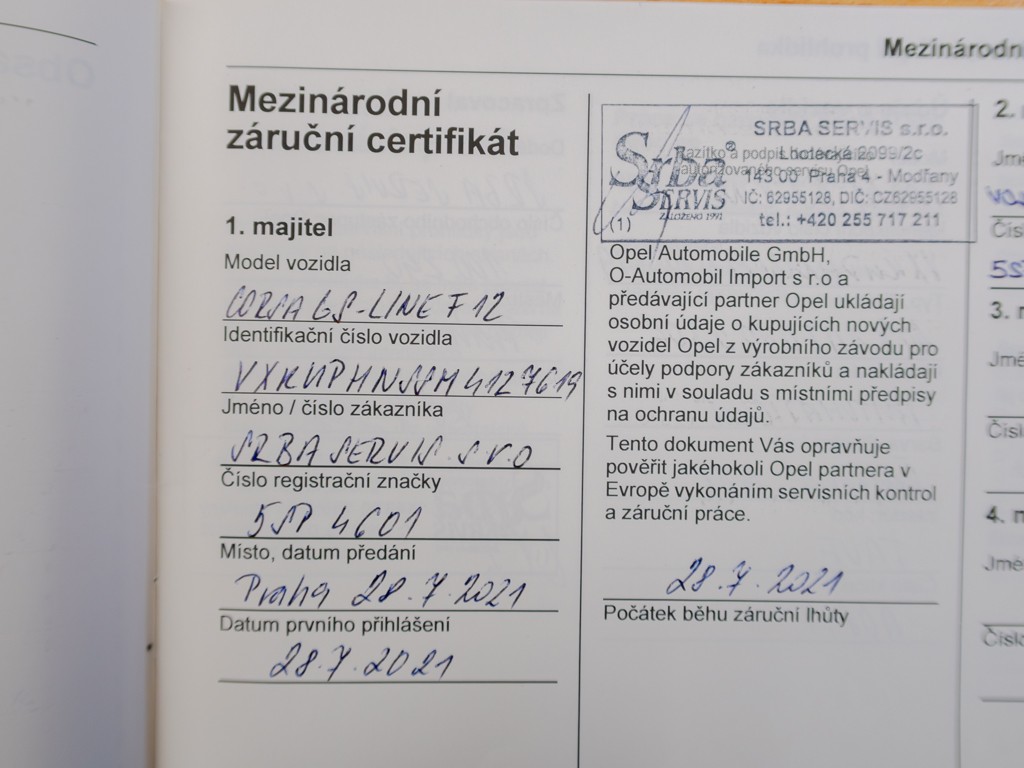 Mezinárodn
Mezinárodní
záruční certifikát
1. majitel
Model vozidla
CORSA GS-LINE F 12
Identifikační číslo vozidla
VXKUPHNSSM4127619
Jméno / číslo zákazníka
SRBA SERVIS s.r.o
Číslo registrační značky
5SP 4601
Místo, datum předání
Praha 28.7.2021
Datum prvního přihlášení
28.7.2021
Srba®
SERVIS
ZALOŽENO 1991
SRBA SERVIS s.r.o.
Lhotecká 2099/2c
143 00 Praha 4 - Modřany
IČ: 62955128, DIČ: CZ62955128
tel.: +420 255 717 211
Razítko a podpis
autorizovaného servisu Opel
(1)
Opel Automobile GmbH,
O-Automobil Import s r.o a
předávající partner Opel ukládají
osobní údaje o kupujících nových
vozidel Opel z výrobního závodu pro
účely podpory zákazníků a nakládají
s nimi v souladu s místními předpisy
na ochranu údajů.
Tento dokument Vás opravňuje
pověřit jakéhokoli Opel partnera v
Evropě vykonáním servisních kontrol
a záruční práce.
28.7.2021
Počátek běhu záruční lhůty
2.
Jmé
Čís
5S
3.
Jmé
Čísl
4.
Jmé
Číslo